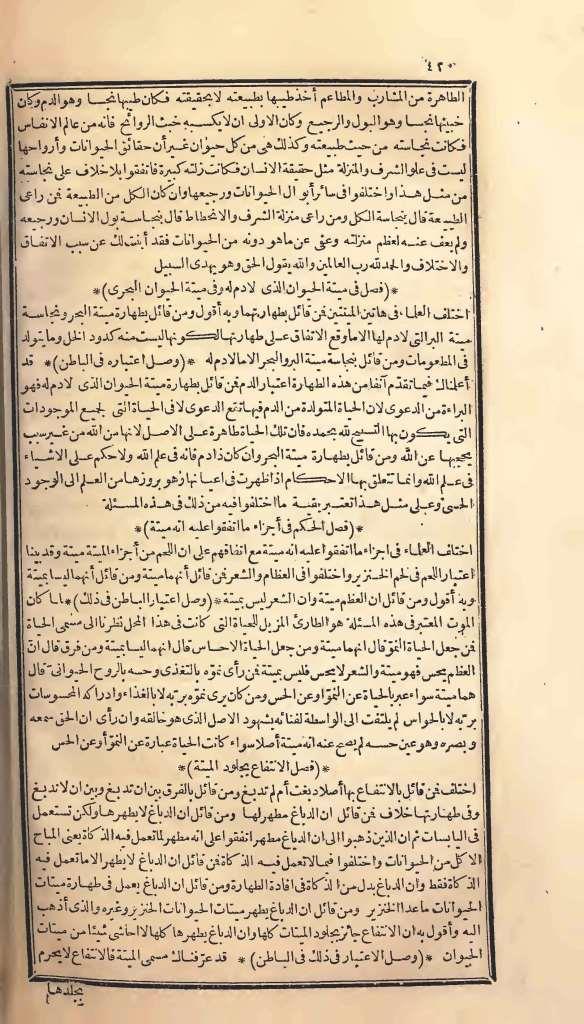 ٤٢٠
الطاهرة من المشارب والمطاعم أخذ طيبها بطبيعته لا بحقيقته فكان طيبها نجسا وهو الدم وكان
خبيثها نجسا وهو البول والرجيع وكان الاولى ان لا يكسبه خبث الروائح فانه من عالم الانفاس
فكانت نجاسته من حيث طبيعته وكذلك هى من كل حيوان غير أن حقائق الحيوانات وأرواحها
ليست فى علو الشرف والمنزلة مثل حقيقة الانسان فكانت زلته كبيرة فاتفقوا بلا خلاف على نجاسته
من مثل هذا واختلفوا فى سائر أبوال الحيوانات ورجيعها وان كان الكل من الطبيعة فمن راعى
الطبيعة قال بنجاسة الكل ومن راعى منزلة الشرف والانحطاط قال بنجاسة بول الانسان ورجيعه
ولم يعف عنه لعظم منزلته وعفى عن ما هو دونه من الحيوانات فقد أبنت لك عن سبب الاتفاق
والاختلاف والحمد لله رب العالمين والله يقول الحق وهو يهدى السبيل
*(فصل فى ميتة الحيوان الذى لا دم له وفى ميتة الحيوان البحرى)*
اختلف العلماء فى هاتين الميتتين فمن قائل بطهارتهما وبه أقول ومن قائل بطهارة ميتة البحر ونجاسة
ميتة البر التى لا دم لها الا ما وقع الاتفاق على طهارتها لكونها ليست منه كدود الخل وما يتولد
فى المطعومات ومن قائل بنجاسة ميتة البر والبحر الا ما لا دم له *(وصل اعتباره فى الباطن)* قد
أعلمناك فيما تقدم آنفا من هذه الطهارة اعتبار الدم فمن قائل بطهارة ميتة الحيوان الذى لا دم له فهو
البراءة من الدعوى لان الحياة المتولدة من الدم فيها تقع الدعوى لا فى الحياة التى لجميع الموجودات
التى يكون بها التسبيح لله بحمده فان تلك الحياة طاهرة على الاصل لانها من الله من غير سبب
يحجبها عن الله ومن قائل بطهارة ميتة البحر وان كان ذا دم فانه فى علم الله ولا حكم على الاشياء
فى علم الله وانما تتعلق بها الاحكام اذا ظهرت فى اعيانها وهو بروزها من العلم الى الوجود
الحسى وعلى مثل هذا تعتبر بقية ما اختلفوا فيه من ذلك فى هذه المسئلة
*(فصل الحكم فى أجزاء ما اتفقوا عليه انه ميتة)*
اختلف العلماء فى اجزاء ما اتفقوا عليه انه ميتة مع اتفاقهم على ان اللحم من أجزاء الميتة ميتة وقد بينا
اعتبار اللحم فى لحم الخنزير واختلفوا فى العظام والشعر فمن قائل أنهما ميتة ومن قائل أنهما ليسا بميتة
وبه أقول ومن قائل ان العظم ميتة وان الشعر ليس بميتة *(وصل اعتبار الباطن فى ذلك)* لما كان
الموت المعتبر فى هذه المسئلة هو الطارئ المزيل للحياة التى كانت فى هذا المحل نظرنا الى مسمى الحياة
فمن جعل الحياة النموّ قال انهما ميتة ومن جعل الحياة الاحساس قال انهما ليسا بميتة ومن فرق قال انّ
العظم يحس فهو ميتة والشعر لا يحس فليس بميتة فمن رأى نموّه بالتغذى وحسه بالروح الحيوانىّ قال
هما ميتة سواء عبر بالحياة عن النموّ أو عن الحس ومن كان يرى نموّه بربه لا بالغذاء وادراكه المحسوسات
بربه لا بالحواس لم يلتفت الى الواسطة لفنائه بشهود الاصل الذى هو خالقه وان رأى ان الحق سمعه
وبصره وهو عين حسه لم يصح عنه انه ميتة أصلا سواء كانت الحياة عبارة عن النموّ أو عن الحس
*(فصل الانتفاع بجلود الميتة)*
اختلف فمن قائل بالانتفاع بها أصلا دبغت أم لم تدبغ ومن قائل بالفرق بين ان تدبغ وبين ان لا تدبغ
وفى طهارتها خلاف فمن قائل ان الدباغ مطهر لها ومن قائل ان الدباغ لا يطهرها ولكن تستعمل
فى اليابسات ثم ان الذين ذهبوا الى ان الدباغ مطهر اتفقوا على انه مطهر لما تعمل فيه الذكاة يعنى المباح
الاكل من الحيوانات واختلفوا فيما لا تعمل فيه الذكاة فمن قائل ان الدباغ لا يطهر الا ما تعمل فيه
الذكاة فقط وان الدباغ بدل من الذكاة فى افادة الطهارة ومن قائل ان الدباغ يعمل فى طهارة ميتات
الحيوانات ما عدا الخنزير ومن قائل ان الدباغ يطهر ميتات الحيوانات الخنزير وغيره والذى أذهب
اليه وأقول به ان الانتفاع جائز بجلود الميتات كلها وان الدباغ يطهرها كلها لا احاشى شيئا من ميتات
الحيوان *(وصل الاعتبار فى ذلك فى الباطن)* قد عرّفناك مسمى الميتة فالانتفاع لا يحرم
بجلدها